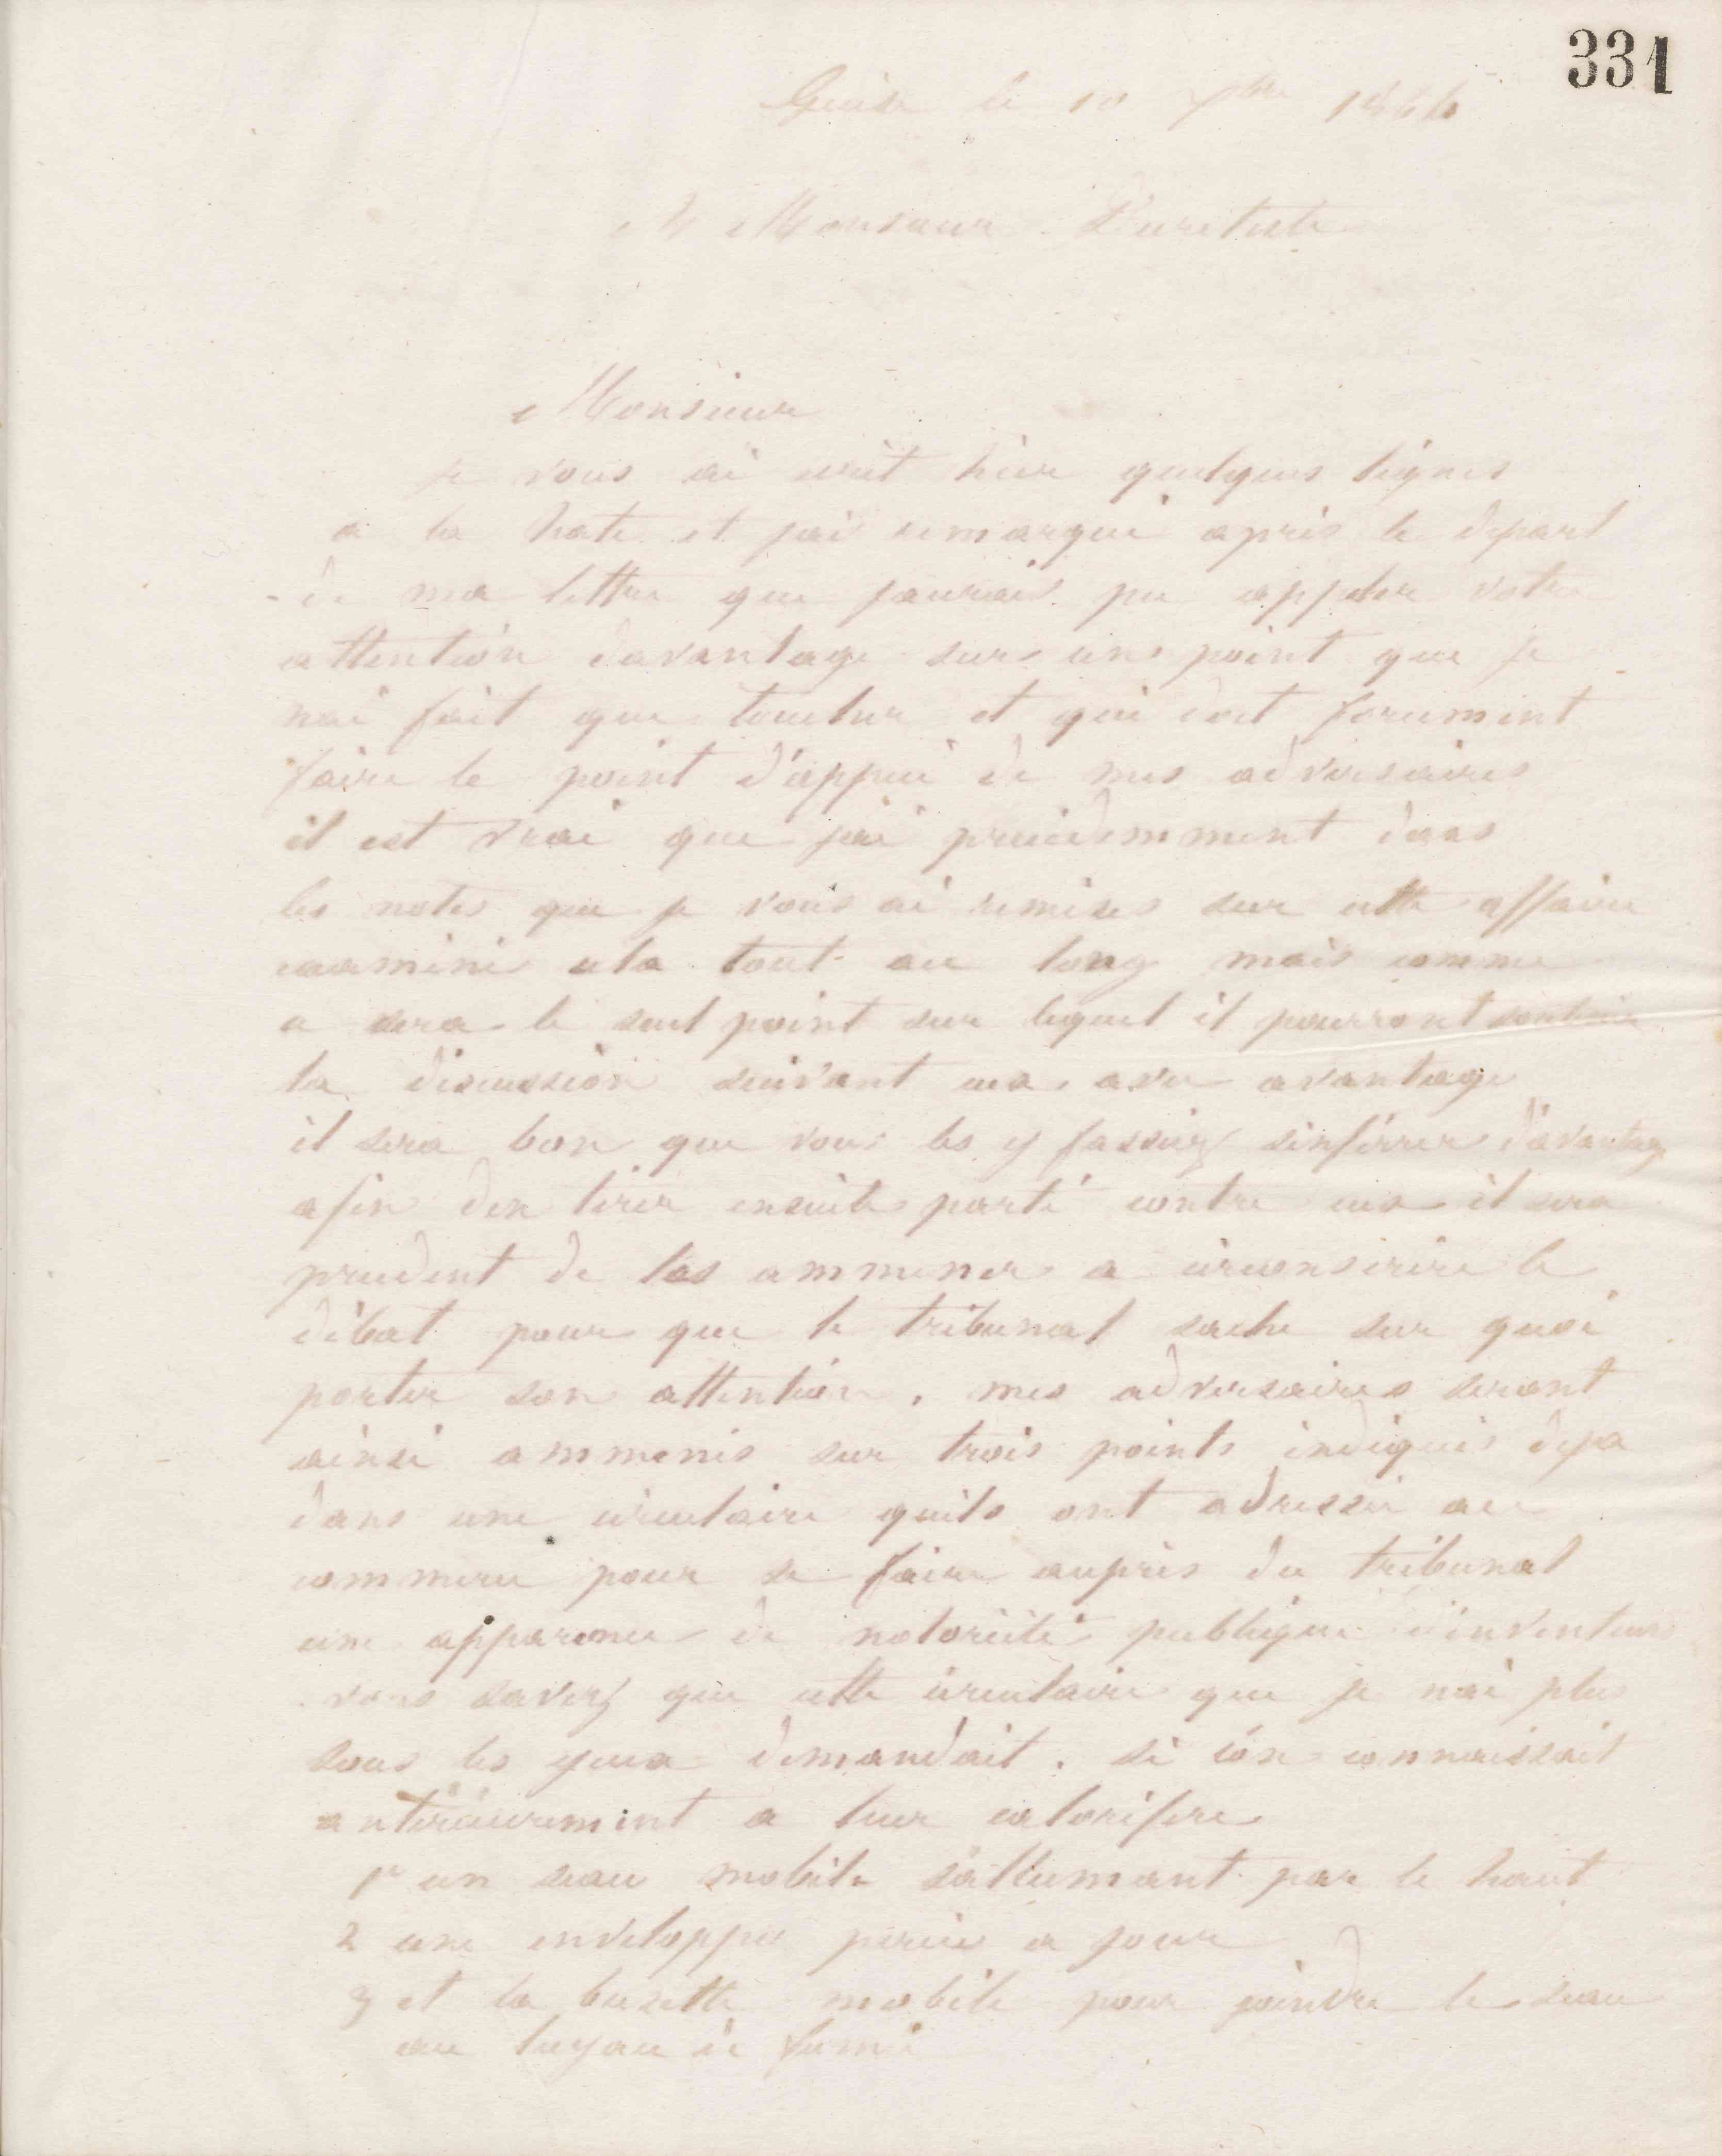 331
Guise le 10 7bre 1846
A Monsieur
Monsieur
je vous ai ecrit hier quelques lignes
a la hate et jai remarqué après le depart
de ma lettre que jaurais pu appeler votre
attention davantage sur un point que je
nai fait que toucher et qui doit forcement
faire le point d'appui de mes adversaires
il est vrai que jai precedemment dans
les notes que je vous ai remises sur cette affaire
examiné cela tout au long mais comme
ce sera le seul point sur lequel il pourront soutenir
la discussion suivant eux avec avantage
il sera bon que vous les y fassiez sinferrer davantage
afin den tirer ensuite parti contre eux il sera
prudent de les ammener a circonscrire le
débat pour que le tribunal sache sur quoi
porter son attention, mes adversaires seront
ainsi ammenés sur trois points indiqués deja
dans une circulaire quils ont adressée au
commerce pour se faire auprès du tribunal
une apparence de notoriété publique d'inventeurs
vous savez que cette circulaire que je nai plus
sous les yeux demandait. si lon connaissait
antérieurement a leur calorifere
1º un seau mobile s'allumant par le haut
2 une enveloppe percée a jour
3 et la busette mobile pour joindre le seau
au tuyau de fumé